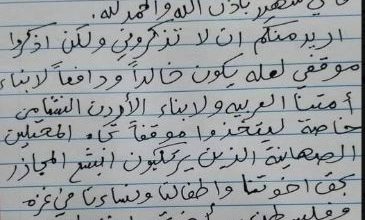 شهيد باذن الله والحمد لله.
اريد منكم ان لا تذكروني ولكن اذكروا
موقفي لعله يكون خالداً ودافعاً لابناء
أمتنا العربيه ولابناء الأردن النشامى
خاصة ليتخذوا موقفاً تجاه المحتلين
الصهاينة الذين يرتكبون ابشع المجازر
بحق اخوتنا واطفالنا ونساءنا في غزه